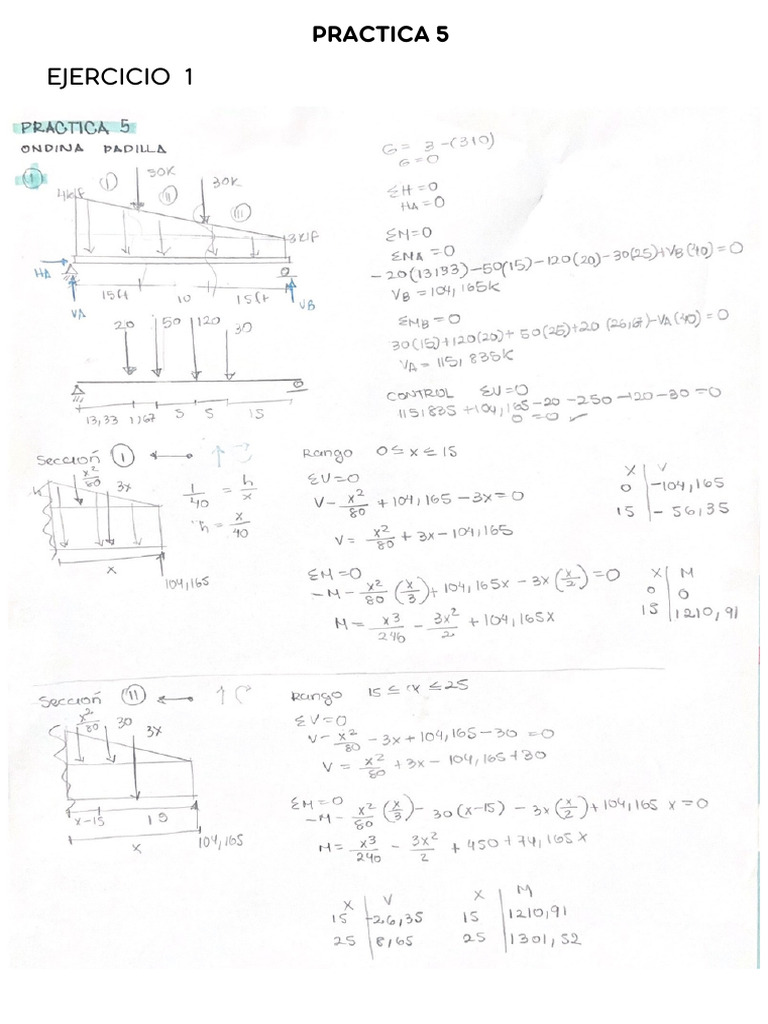 PRACTICA 5
EJERCICIO 1
PRACTICA 5
ONDINA PADILLA
I
50K
30K
4klf
I
II
III
3klf
HA
15ft
10
15ft
VA
VB
20
50
120
30
13,33 1,67 5 5 15
G= 3-(3+0)
G=0
ΣH=0
HA=0
ΣM=0
ΣMA=0
-20(13,33)-50(15)-120(20)-30(25)+VB(40)=0
VB=104,165K
ΣMB=0
30(15)+120(20)+50(25)+20(26,67)-VA(40)=0
VA=115,835K
CONTROL ΣV=0
115,835+104,165-20-250-120-30=0
0=0 ✓
Sección I
x²/80
3x
h
1/40 = h/x
∴ h = x/40
x
104,165
Rango 0≤x≤15
ΣV=0
V-x²/80+104,165-3x=0
V= x²/80+3x-104,165
x | V
0 | -104,165
15 | -56,35
ΣM=0
-M-x²/80(x/3)+104,165x-3x(x/2)=0
M= x³/246 - 3x²/2 + 104,165x
x | M
0 | 0
15 | 1210,91
Sección II
x²/80
30
3x
x-15
15
x
104,165
Rango 15≤x≤25
ΣV=0
V-x²/80-3x+104,165-30=0
V= x²/80+3x-104,165+30
ΣM=0
-M-x²/80(x/3)-30(x-15)-3x(x/2)+104,165x=0
M= x³/240 - 3x²/2 + 450+74,165x
x | V
15 | -26,35
25 | 8,65
x | M
15 | 1210,91
25 | 1301,52